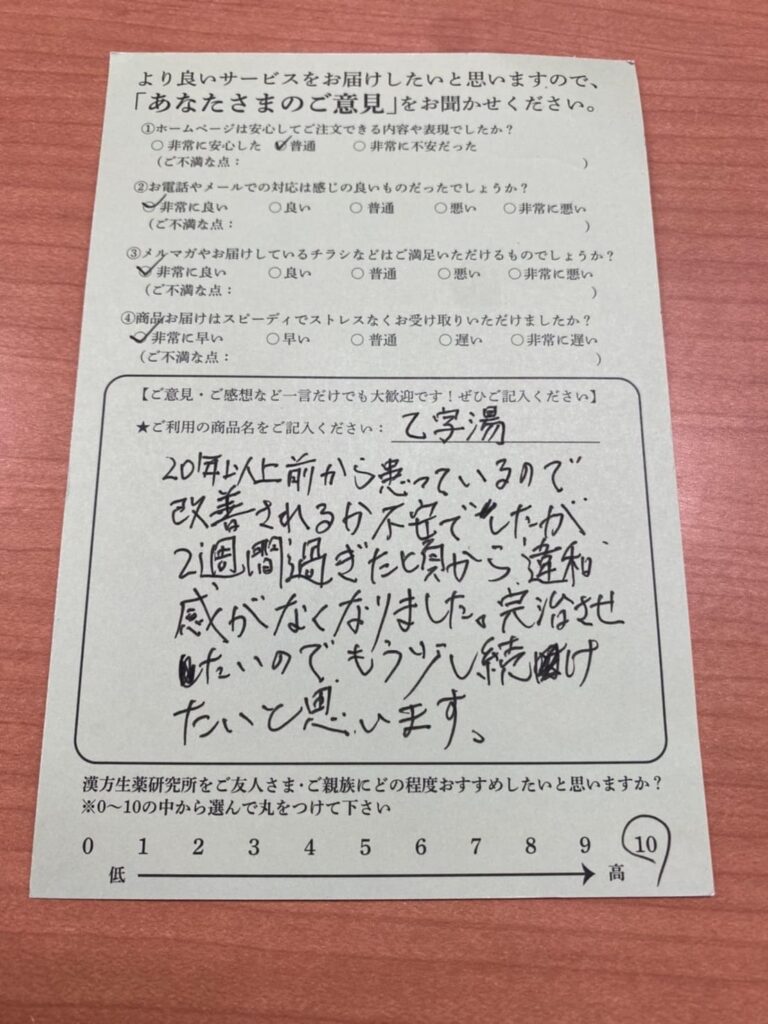 より良いサービスをお届けしたいと思いますので、
「あなたさまのご意見」をお聞かせください。
①ホームページは安心してご注文できる内容や表現でしたか？
○非常に安心した ○普通 ○非常に不安だった
(ご不満な点： )
②お電話やメールでの対応は感じの良いものだったでしょうか？
○非常に良い ○良い ○普通 ○悪い ○非常に悪い
(ご不満な点： )
③メルマガやお届けしているチラシなどはご満足いただけるものでしょうか？
○非常に良い ○良い ○普通 ○悪い ○非常に悪い
(ご不満な点： )
④商品お届けはスピーディでストレスなくお受け取りいただけましたか？
○非常に早い ○早い ○普通 ○遅い ○非常に遅い
(ご不満な点： )
【ご意見・ご感想など一言だけでも大歓迎です！ぜひご記入ください】
★ご利用の商品名をご記入ください： 乙字湯
20年以上前から患っているので
改善されるか不安でしたが
2週間過ぎた頃から違和
感がなくなりました。完治させ
たいのでもう少し続け
たいと思います。
漢方生薬研究所をご友人さま・ご親族にどの程度おすすめしたいと思いますか？
※0〜10の中から選んで丸をつけて下さい
0 1 2 3 4 5 6 7 8 9 10
低 高